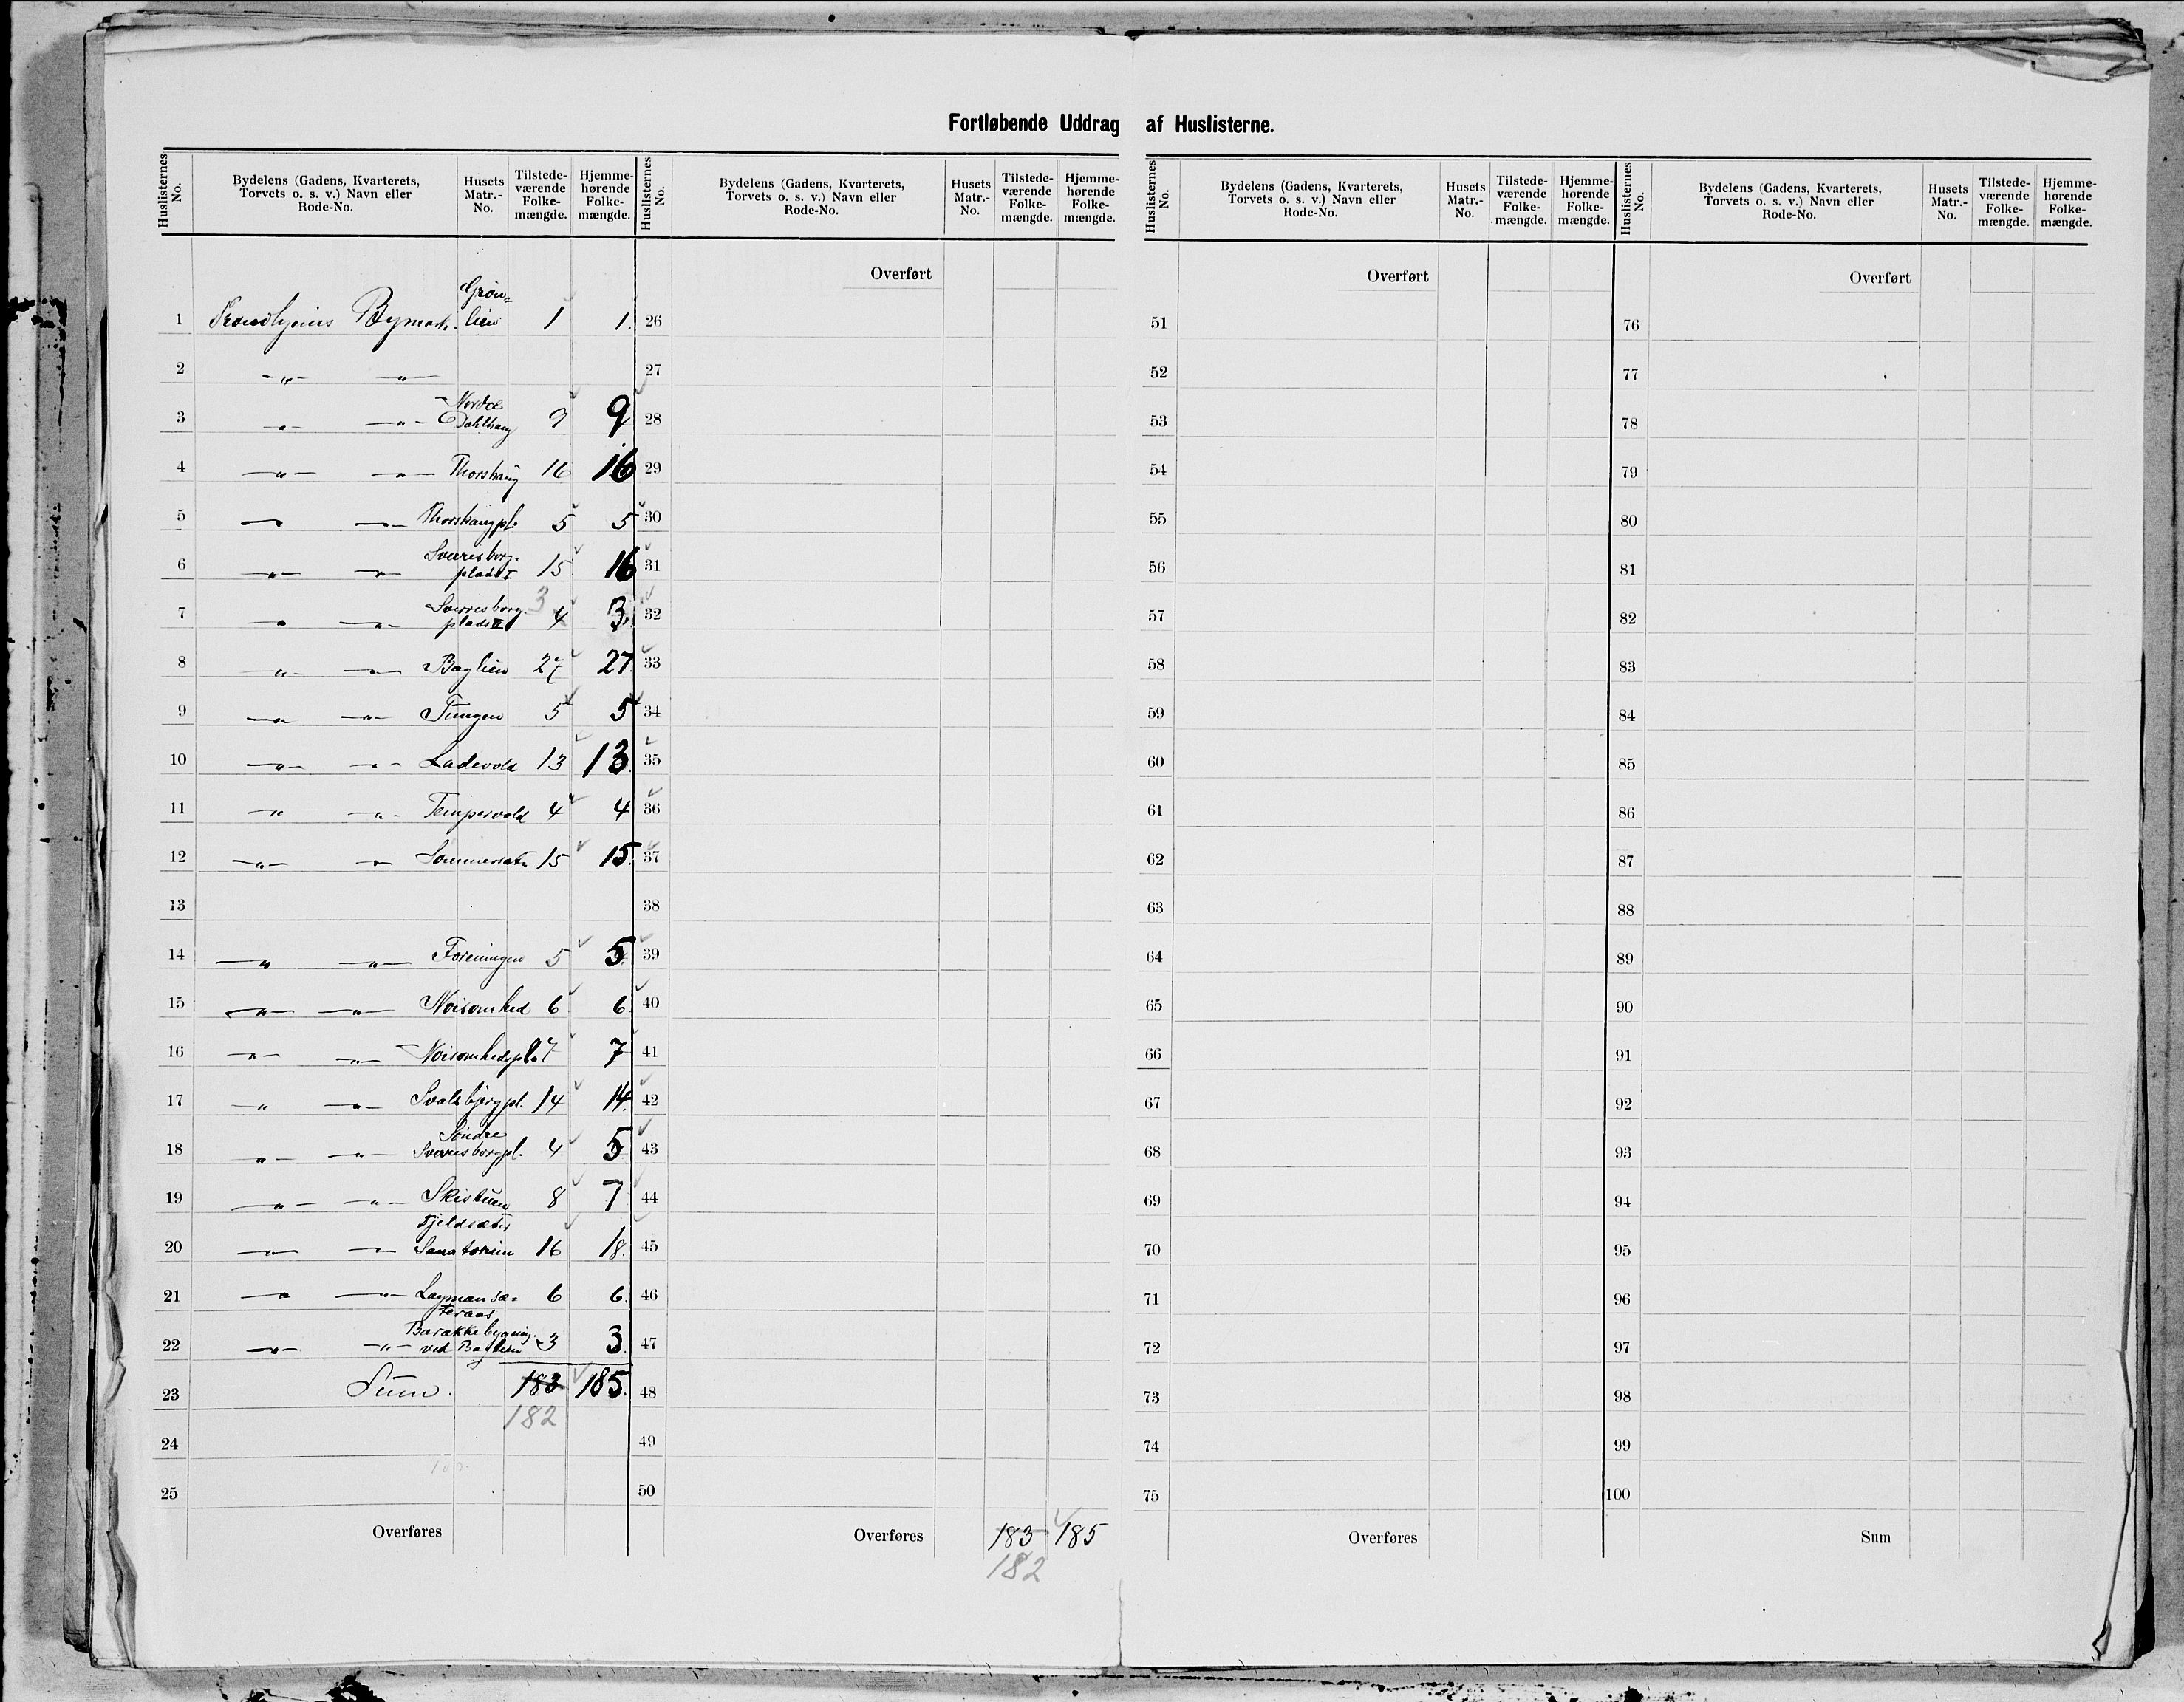 Fortløbende Uddrag af Huslisterne.
Huslisternes No. Bydelens (Gadens, Kvarterets, Torvets o. s. v.) Navn eller Rode-No. Husets Matr.-No. Tilstede-værende Folke-mængde. Hjemme-hørende Folke-mængde.
1 Trondhjems Bymark. Grøn=lien 1 1.
2 -"- -"-
3 -"- -"- Nordre Dahlhaug 9 9
4 -"- -"- Thorshaug 16 16
5 -"- -"- Thorshaugpl. 5 5
6 -"- -"- Sverresborg=plads I 15 16
7 -"- -"- Sverresborg plads II 3 4 3.
8 -"- -"- Baglien 27 27.
9 -"- -"- Tungen 5 5
10 -"- -"- Ladevold 13 13.
11 -"- -"- Tempervold 4 4
12 -"- -"- Sommersætr 15 15.
13
14 -"- -"- Foreningen 5 5.
15 -"- -"- Noisomhed 6 6.
16 -"- -"- Noisomhedspl. 7 7
17 -"- -"- Svalebjergpl. 14 14.
18 -"- -"- Søndre Sverresborgpl. 4 5.
19 -"- -"- Skistuen 8 7
20 -"- -"- Fjeldsæter Sanatorium 16 18.
21 -"- -"- Lagmansæ=teraas 6 6.
22 -"- -"- Barakkebygning. ved Baglien 3 3.
23 Sum. 183 185.
182
24
25
Overføres
Huslisternes No. Bydelens (Gadens, Kvarterets, Torvets o. s. v.) Navn eller Rode-No. Husets Matr.-No. Tilstede-værende Folke-mængde. Hjemme-hørende Folke-mængde.
Overført
26
27
28
29
30
31
32
33
34
35
36
37
38
39
40
41
42
43
44
45
46
47
48
49
50
Overføres 183 185
182
Huslisternes No. Bydelens (Gadens, Kvarterets, Torvets o. s. v.) Navn eller Rode-No. Husets Matr.-No. Tilstede-værende Folke-mængde. Hjemme-hørende Folke-mængde.
Overført
51
52
53
54
55
56
57
58
59
60
61
62
63
64
65
66
67
68
69
70
71
72
73
74
75
Overføres
Huslisternes No. Bydelens (Gadens, Kvarterets, Torvets o. s. v.) Navn eller Rode-No. Husets Matr.-No. Tilstede-værende Folke-mængde. Hjemme-hørende Folke-mængde.
Overført
76
77
78
79
80
81
82
83
84
85
86
87
88
89
90
91
92
93
94
95
96
97
98
99
100
Sum